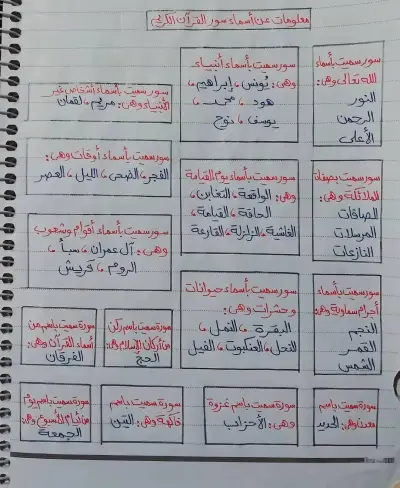 معلومات عن أسماء سور القرآن الكريم
سور سميت بأسماء
الله تعالى وهي:
النور
الرحمن
الأعلى
سور سميت بأسماء أنبياء
وهي: يونس، إبراهيم،
هود، محمد،
يوسف، نوح
سور سميت بأسماء أشخاص غير
الأنبياء وهي: مريم، لقمان
سور سميت بصفات
الملائكة وهي:
الصافات
المرسلات
النازعات
سور سميت بأسماء يوم القيامة
وهي: الواقعة، التغابن،
الحاقة، القيامة،
الغاشية، الزلزلة، القارعة
سور سميت بأسماء أوقات وهي:
الفجر، الضحى، الليل، العصر
سور سميت بأسماء أقوام وشعوب
وهي: آل عمران، سبأ،
الروم، قريش
سور سميت بأسماء
أجرام سماوية وهي:
النجم
القمر
الشمس
سور سميت بأسماء حيوانات
وحشرات وهي:
البقرة، النمل،
النحل، العنكبوت، الفيل
سورة سميت باسم ركن
من أركان الإسلام وهي:
الحج
سورة سميت باسم من
أسماء القرآن وهي:
الفرقان
سورة سميت باسم
معدن وهي: الحديد
سورة سميت باسم غزوة
وهي: الأحزاب
سورة سميت باسم
فاكهة وهي: التين
سورة سميت باسم يوم
من أيام الأسبوع وهي:
الجمعة